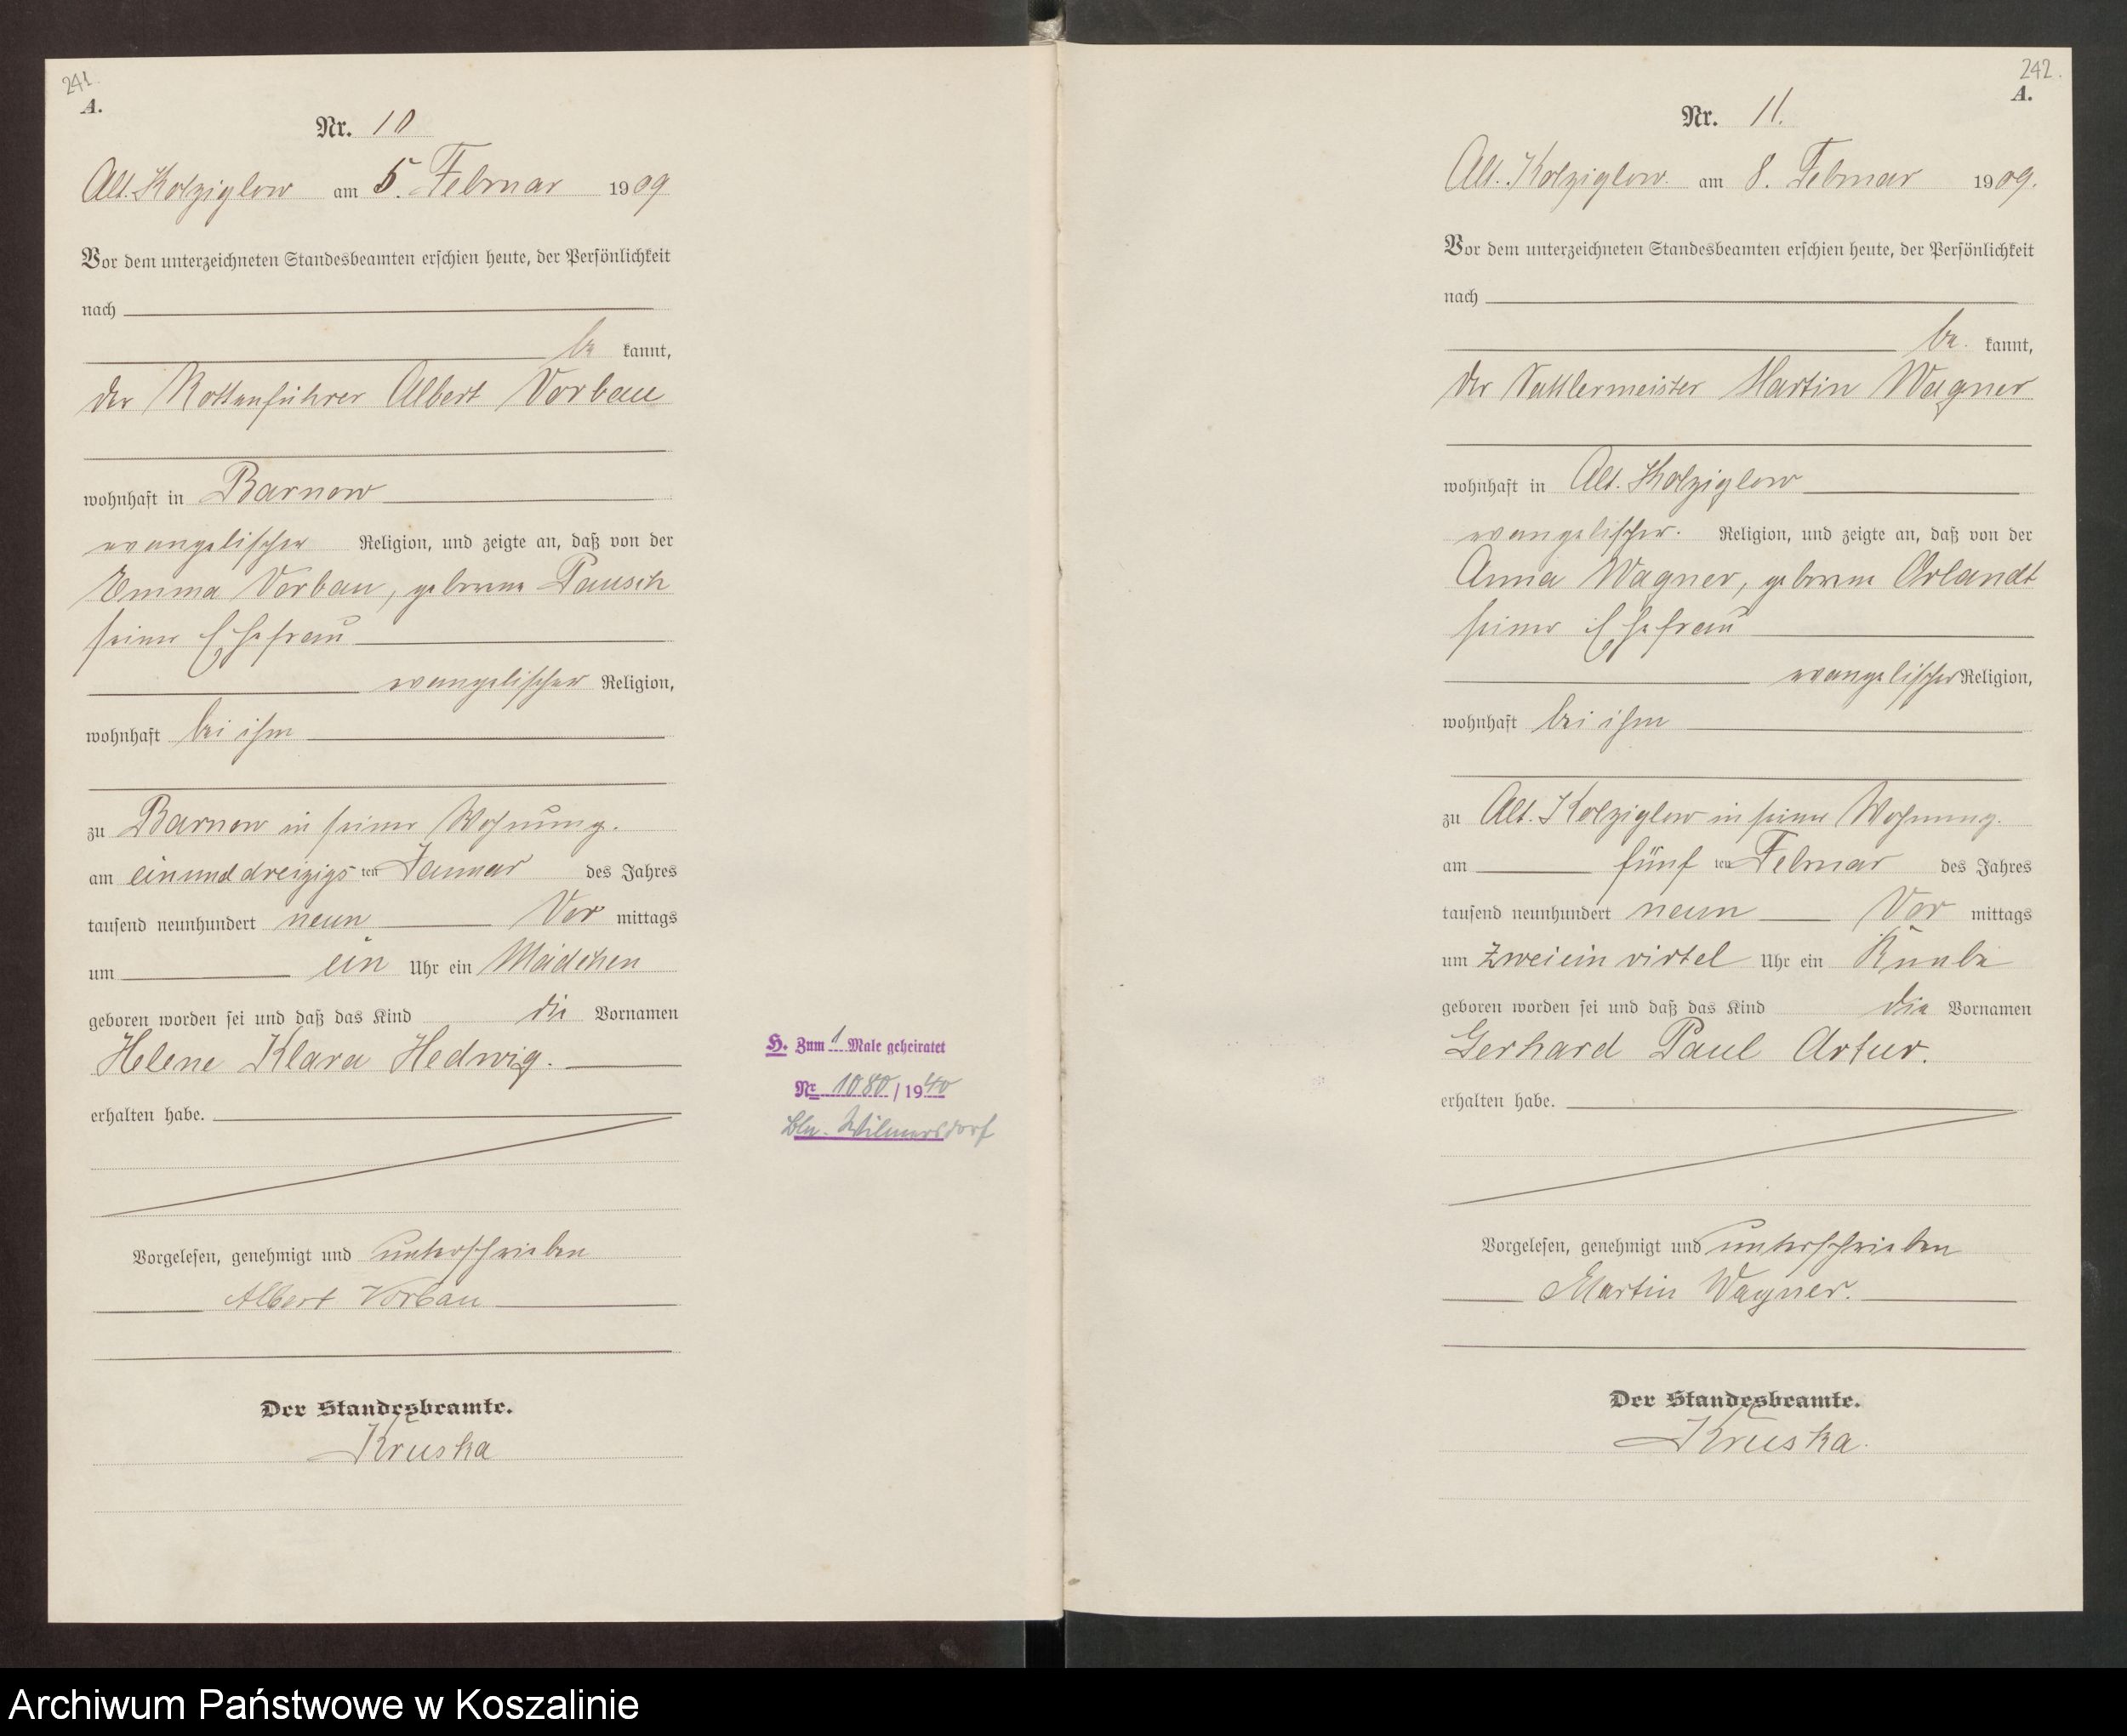 241.
A.
Nr. 10
Alt. Kolziglow am 5. Februar 1909
Vor dem unterzeichneten Standesbeamten erschien heute, der Persönlichkeit
nach
be kannt,
der Rottenführer Albert Vorbau
wohnhaft in Barnow
evangelischer Religion, und zeigte an, daß von der
Emma Vorbau, geborene Pausch
seiner Ehefrau
evangelischer Religion,
wohnhaft bei ihm
zu Barnow in seiner Wohnung.
am einunddreizigs ten Januar des Jahres
tausend neunhundert neun Vor mittags
um ein Uhr ein Mädchen
geboren worden sei und daß das Kind die Vornamen
Helene Klara Hedwig.
erhalten habe.
Vorgelesen, genehmigt und unterschrieben
Albert Vorbau
Der Standesbeamte.
Kruska
H. Zum 1 Male geheiratet
Nr. 1080 / 1940
Bln. Wilmersdorf
242.
A.
Nr. 11.
Alt. Kolziglow. am 8. Februar 1909.
Vor dem unterzeichneten Standesbeamten erschien heute, der Persönlichkeit
nach
be. kannt,
der Sattlermeister Martin Wagner
wohnhaft in Alt. Kolziglow
evangelischer. Religion, und zeigte an, daß von der
Anna Wagner, geborene Orlandt
seiner Ehefrau
evangelischer Religion,
wohnhaft bei ihm
zu Alt. Kolziglow in seiner Wohnung.
am fünf ten Februar des Jahres
tausend neunhundert neun Vor mittags
um zweiein virtel Uhr ein Knabe
geboren worden sei und daß das Kind die Vornamen
Gerhard Paul Artur.
erhalten habe.
Vorgelesen, genehmigt und unterschrieben
Martin Wagner.
Der Standesbeamte.
Kruska.
Archiwum Państwowe w Koszalinie